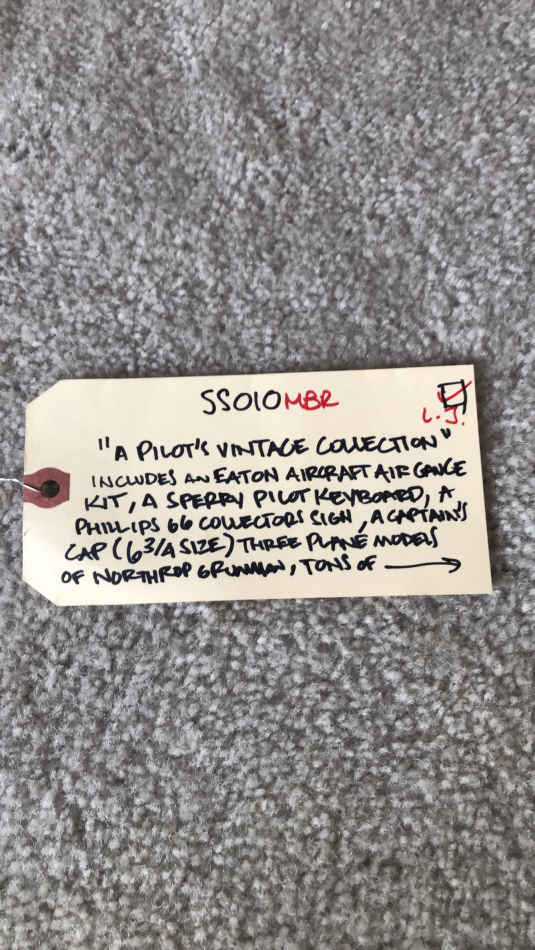 SS010MBR
L.J.
"A PILOT'S VINTAGE COLLECTION"
INCLUDES AN EATON AIRCRAFT AIR GAUGE
KIT, A SPERRY PILOT KEYBOARD, A
PHILLIPS 66 COLLECTORS SIGN, A CAPTAIN'S
CAP (6 3/4 SIZE) THREE PLANE MODELS
OF NORTHROP GRUMMAN, TONS OF →